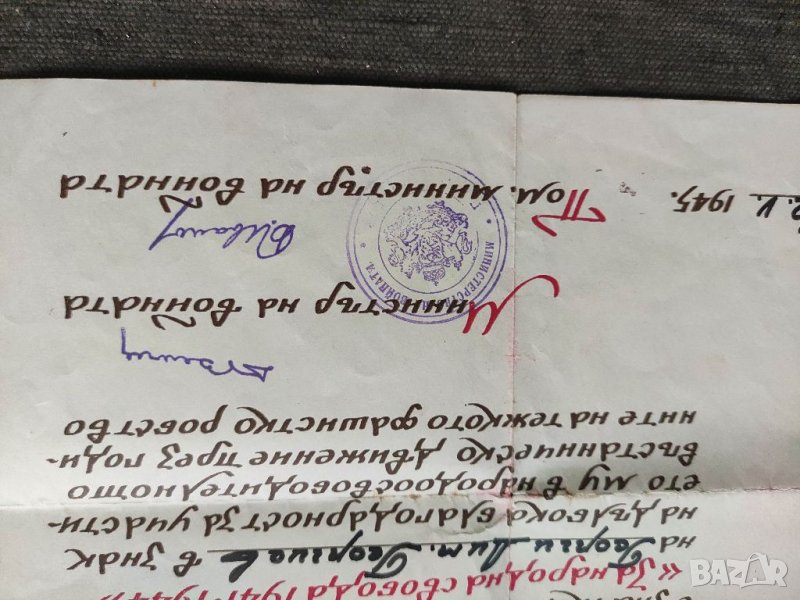 «За народна свобода 1941-1944»
на Георги Дим. Георгиев в знак
на дълбока благодарност за участи-
ето му в народоосвободителното
въстанническо движение през годи-
ните на тежкото фашистко робство
Министър на войната
МИНИСТЕРСТВО НА ВОЙНАТА
Пом. министър на войната
V. 1945.
BAZAR